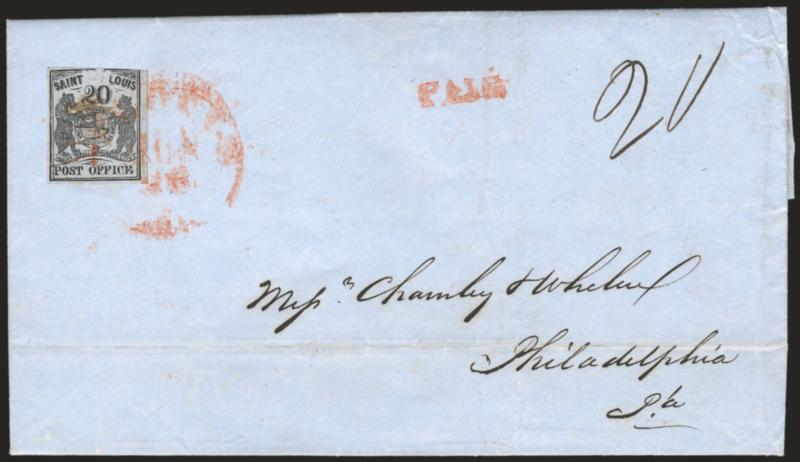 SAINT LOUIS
20
POST OFFICE
PAID
20
Mess.rs Charnley & Whelen
Philadelphia
Pa